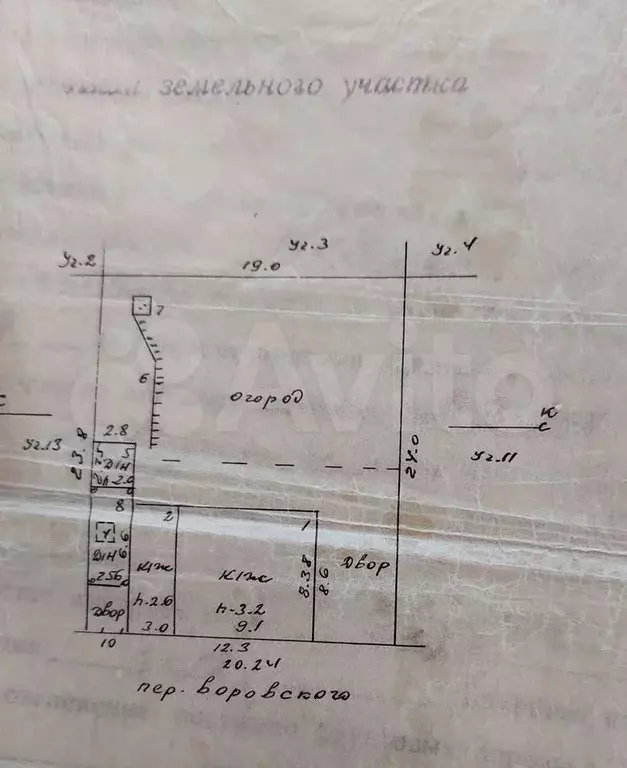 земельного участка
Уг.2
Уг.3
Уг.4
19.0
7
6
огород
К
С
2.8
Уг.13
23.8
5
Д1Н
24.0
Уг.11
8
2
1
6
Д1Н
К1ж
К1ж
8.38
8.6
Двор
256
Двор
h-2.6
h-3.2
3.0
9.1
10
12.3
20.24
пер. Воровского
Avito